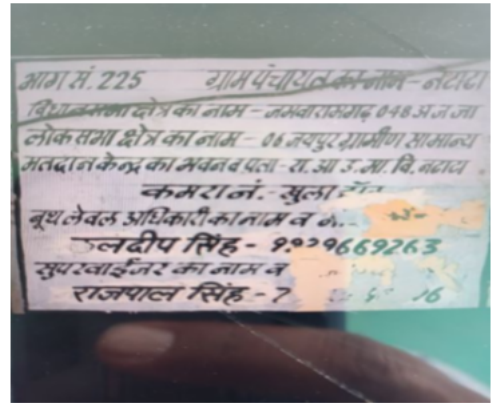 भाग सं. 225 ग्राम पंचायत का नाम - नटाटा
विधानसभा क्षेत्र का नाम - जमवारामगढ़ 048 अ ज जा
लोकसभा क्षेत्र का नाम - 06 जयपुर ग्रामीण सामान्य
मतदान केन्द्र का भवन व पता - रा. आ उ. मा. वि. नटाटा
कमरा नं. -
बूथ लेवल अधिकारी का नाम व
सिंह -
सुपरवाईजर का नाम व
राजपाल सिंह - 7